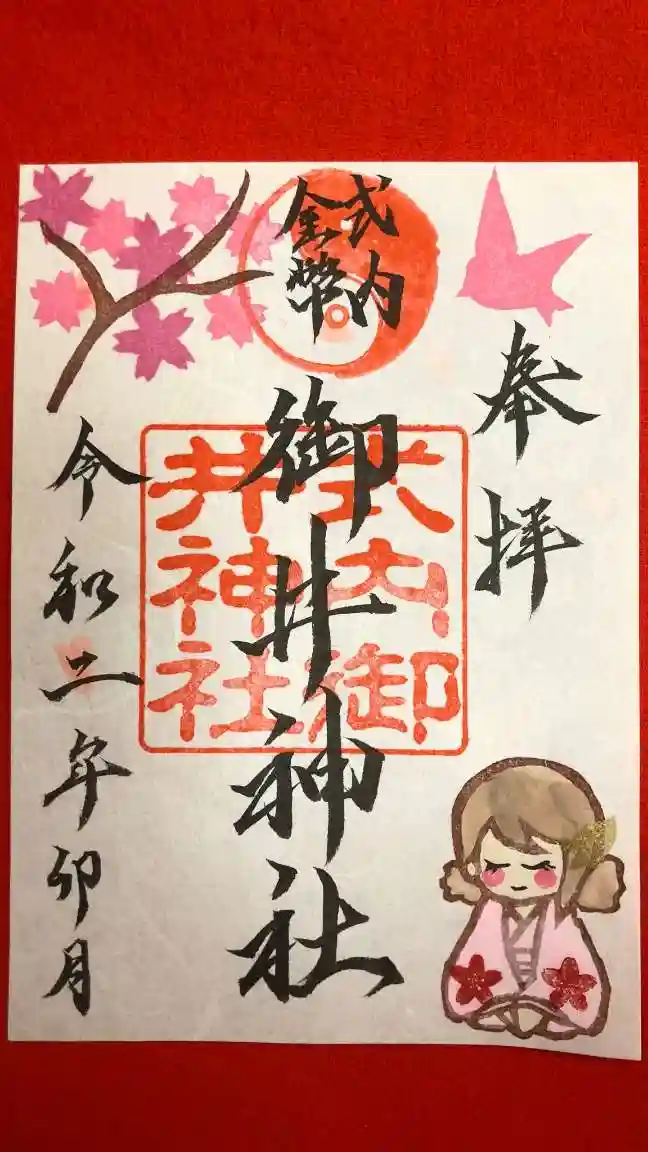 奉拝
式内
金幣
御井神社
式内御
井神社
令和二年卯月